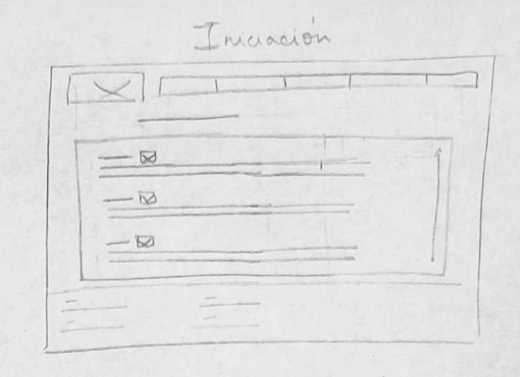 Iniciación